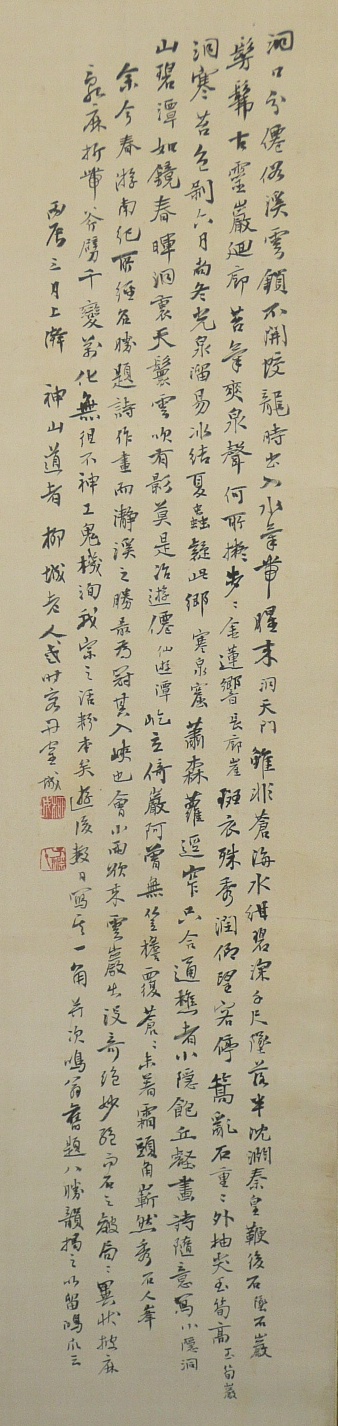 洞口分僊俗溪雲鎖不開蛟龍時出入水氣帶腥來 洞天門 雖非蒼海水紺碧深千尺墜落半沈澗秦皇鞭後石 墜石巖
髣髴古靈巖迴廊苔氣爽泉聲何所擬步〻金蓮響 長廊崖 斑衣殊秀潤仰望客停篙亂石重〻外抽尖玉筍高 玉筍巖
洞寒苔色剝六月尚冬光泉溜易冰結夏蟲疑此鄉 寒泉窟 蕭森蘿逕窄只合通樵者小隱飽丘壑畫詩隨意寫 小隱洞
山碧潭如鏡春暉洞裏天鬟雲吹有影莫是冶遊僊 仙遊潭 屹立倚巖阿曾無笠檐覆蒼〻未着霜頭角嶄然秀 石人峯
余今春游南紀所經名勝題詩作畫而瀞溪之勝最為冠其入峽也會小雨吹來雲巖出没奇絶妙絶而石之皴局〻異狀披麻
亂麻折帶斧劈千變萬化無徃不神工鬼機洵我宗之活粉本矣遊後數日寫其一角并次鳴翁舊題八勝韻揭之以留鴻爪云
丙辰三月上澣 神山道者 柳城老人 時客丹